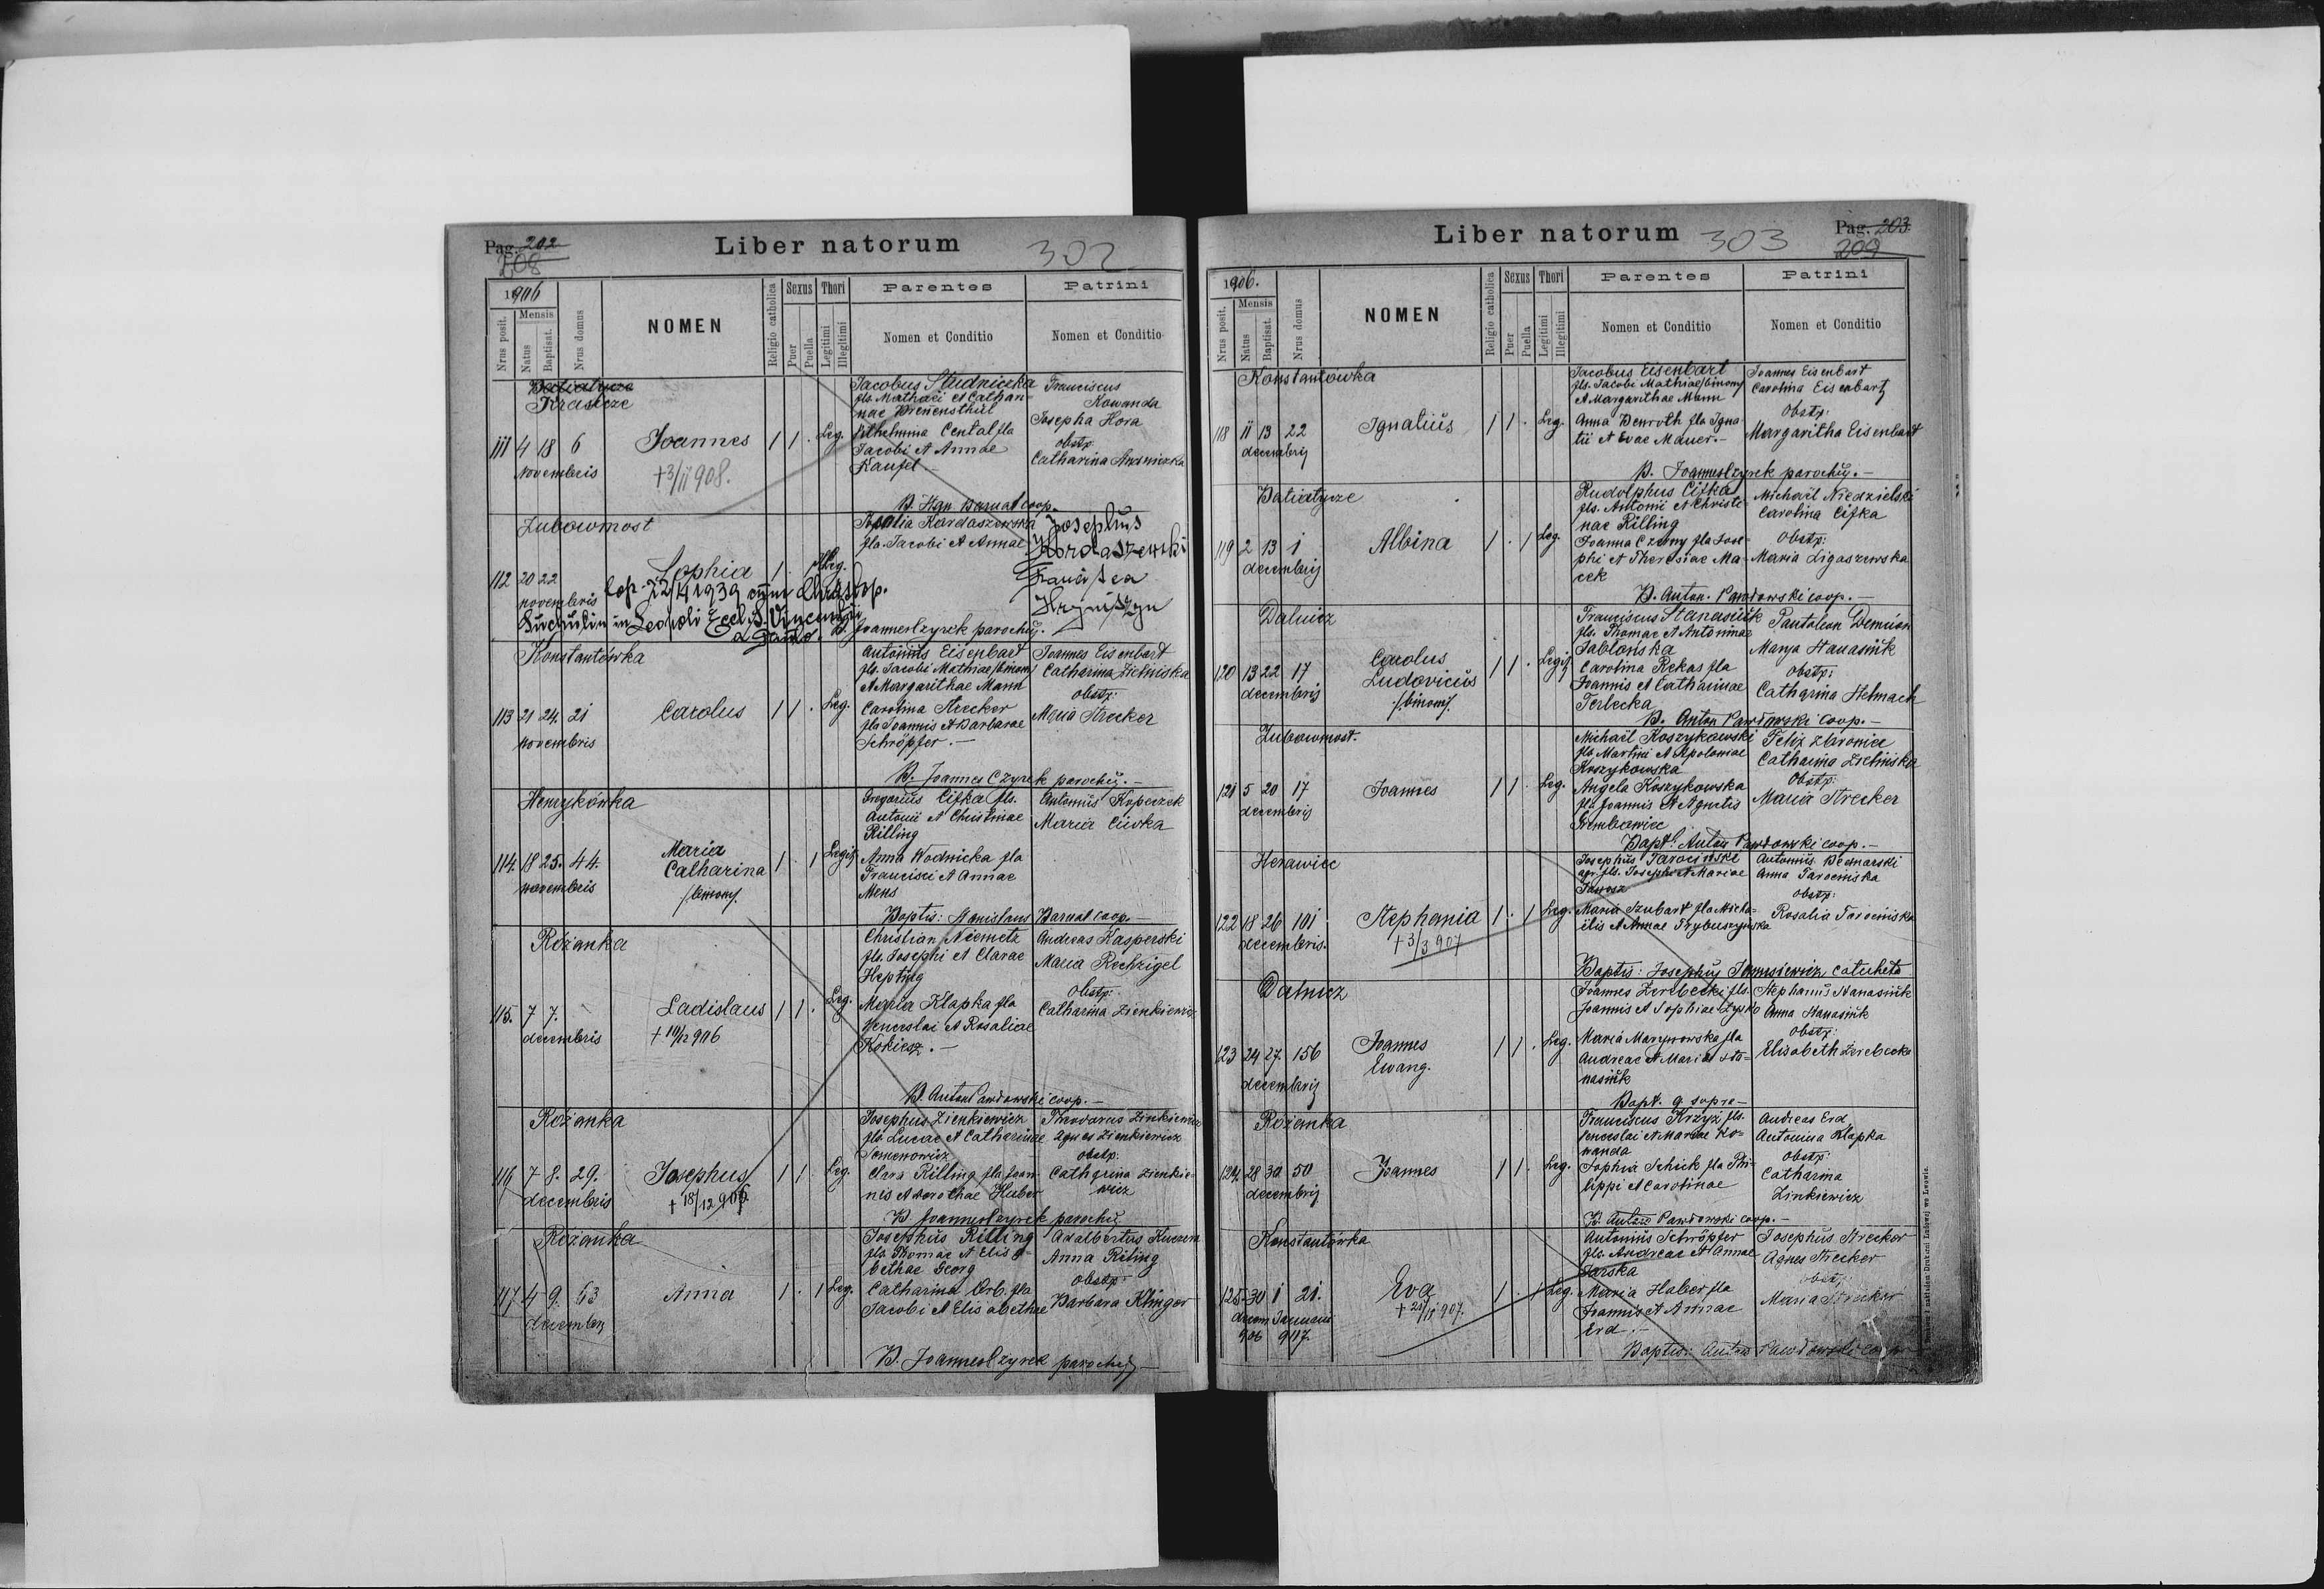 Pag. 202
208
Liber natorum
302
1906
Nrus posit.
Mensis
Natus
Baptisat.
Nrus domus
NOMEN
Religio catholica
Sexus
Puer
Puella
Thori
Legitimi
Illegitimi
Parentes
Nomen et Conditio
Patrini
Nomen et Conditio
Batiatycze
Krasicze
111 4 18 6
novembris
Joannes
+3/11 908.
1 1 . Leg.
Jacobus Studnicka
fls. Mathaei et Cathari-
nae
Vilhelmina Cental fla
Jacobi et Annae
Kaufel
Franciscus
Kowanda
Josepha Hora
obstp:
Catharina
B. Barnat coop.
Zubowmost
112 20 22
novembris
Sophia
1 . 1 Illeg.
Cop. 22/4 1939 cum
in Leopoli Eccl. S. Vincentii
a Paulo.
Rosalia Kardaszewska
fla. Jacobi et Annae
Josephus
Kordaszewski
B. Joannes Czyrek parochus.
Konstantówka
113 21 24. 21
novembris
Carolus
1 1 . Leg.
Antonius Eisenbart
fls. Jacobi Mathiae /binom/
et Margarithae Mann
Carolina Strecker
fla Joannis et Barbarae
Schröpfer. —
Joannes Eisenbart
Catharina Zielinska
obstp:
Maria Strecker
B. Joannes Czyrek parochus. —
Henrykówka
114. 18 25. 44.
novembris
Maria
Catharina
/binom/.
1 . 1 Legit.
Gregorius Cifka fls.
Antonii et Christinae
Rilling
Anna Wodnicka fla
Francisci et Annae
Mens
Antonius Koperzek
Maria Ciivka
Baptis: Stanislaus Barnat coop. —
Rózanka
115. 7 7.
decembris
Ladislaus
+ 10/12 906
1 1 . Leg.
Christian Niemetz
fls. Josephi et Clarae
Hepting
Maria Klapka fla
Venceslai et Rosaliae
Kokiesz. —
Andreas Kasperski
Maria Rechzigel
Obstp:
Catharina Zienkiewicz
B. Anton Pawdowski coop. —
Rózanka
116 7 8. 29.
decembris
Josephus
+ 18/12 906
1 1 . Leg.
Josephus Zienkiewicz
fls Lucae et Catharinae
Semenowicz
Clara Rilling fla Joan-
nis et Dorothae Huber
Theodorus Zinkiewicz
Agnes Zienkiewicz
obstp:
Catharina Zienkie-
wicz
B. Joannes Czyrek parochus
Rózanka
117 4 9. 63
decembris
Anna
1 . 1 Leg.
Josephus Rilling
fls. Thomae et Elisa-
bethae Georg
Catharina Orb. fla
Jacobi et Elisabethae
Adalbertus
Anna Riling
Obstp
Barbara Klinger
B. Joannes Czyrek parochus —
Liber natorum
303
Pag. 203
209
1906.
Nrus posit.
Mensis
Natus
Baptisat.
Nrus domus
NOMEN
Religio catholica
Sexus
Puer
Puella
Thori
Legitimi
Illegitimi
Parentes
Nomen et Conditio
Patrini
Nomen et Conditio
Konstantowka
118 11 13 22
decembris
Ignatius
1 1 . Leg.
Jacobus Eisenbart
fls. Jacobi Mathiae /binom/
et Margarithae Mann
Anna Benroth fla Igna-
tii et Evae Mauer. —
Joannes Eisenbart
Carolina Eisenbart
Obstp:
Margaritha Eisenbart
B. Joannes Czyrek parochus. —
Batiatycze
119 2 13 1
decembris
Albina
1 . 1 Leg.
Rudolphus Cifka
fls. Antonii et Christi-
nae Rilling
Joanna Czerny fla Jose-
phi et Theresiae Ma-
cek
Michaël Niedzielski
Carolina Cifka
Obstp:
Maria Ligaszewska
B. Anton. Pawdowski coop. —
Dalnicz
120 13 22 17
decembris
Carolus
Ludovicus
/:binom/.
1 1 . Legit.
Franciscus Stanasiuk
fls. Thomae et Antoninae
Jablonska
Carolina Rekas fla
Joannis et Catharinae
Terlecka
Pantaleon Demian
Marya Stanasiuk
obstp:
Catharina Helmach
B. Anton Pawdowski coop. —
Zubowmost.
121 5 20 17
decembris
Joannes
1 1 . Leg.
Michaël Koszykowski
fls Martini et Apoloniae
Koszykowska
Angela Koszykowska
fla Joannis et Agnetis
Feliz
Catharina Zielinska
Obstp:
Maria Strecker
Bapt. Anton Pawdowski coop. —
Herawiec
122 18 26 101
decembris.
Stephania
+ 3/3 907
1 . 1 Leg.
Josephus Jarocinski
agr. fls. Josephi et Mariae
Janosz
Maria Szubart fla Micha-
elis et Annae Trybuszynska
Antonius Bednarski
Anna Jarocinska
obstp:
Rosalia Jarocinska
Baptis: Josephus Janusiewicz catecheta
Dalnicz
123 24 27. 156
decembris
Joannes
Ewang.
1 1 . Leg.
Joannes Zerebecki fls.
Joannis et Sophiae Zysko
Maria Marynowska fla
Andreae et Mariae Sta-
nasiuk
Stephanus Stanasiuk
Anna Stanasiuk
Obstp:
Elisabeth Zerebecka
Bapt. q. supra —
Rózanka
124. 28 30 50
decembris
Joannes
1 1 . Leg.
Franciscus Krzyz fls.
Venceslai et Mariae Ko-
wanda
Sophia Schick fla Phi-
lippi et Carolinae
Andreas Erd
Antonina Klapka
Obstp:
Catharina
Zinkiewicz
B. Anton Pawdowski coop. —
Konstantówka
125. 30 1 21.
decem Januarii
906 907.
Eva
+ 907.
1 . 1 Leg.
Antonius Schröpfer
fls. Andreae et Annae
Jarska
Maria Haber fla
Joannis et Annae
Erd. —
Josephus Strecker
Agnes Strecker
obstp:
Maria Strecker
Baptis: Anton Pawdowski coop
nakładem Drukarni Ludowej we Lwowie.